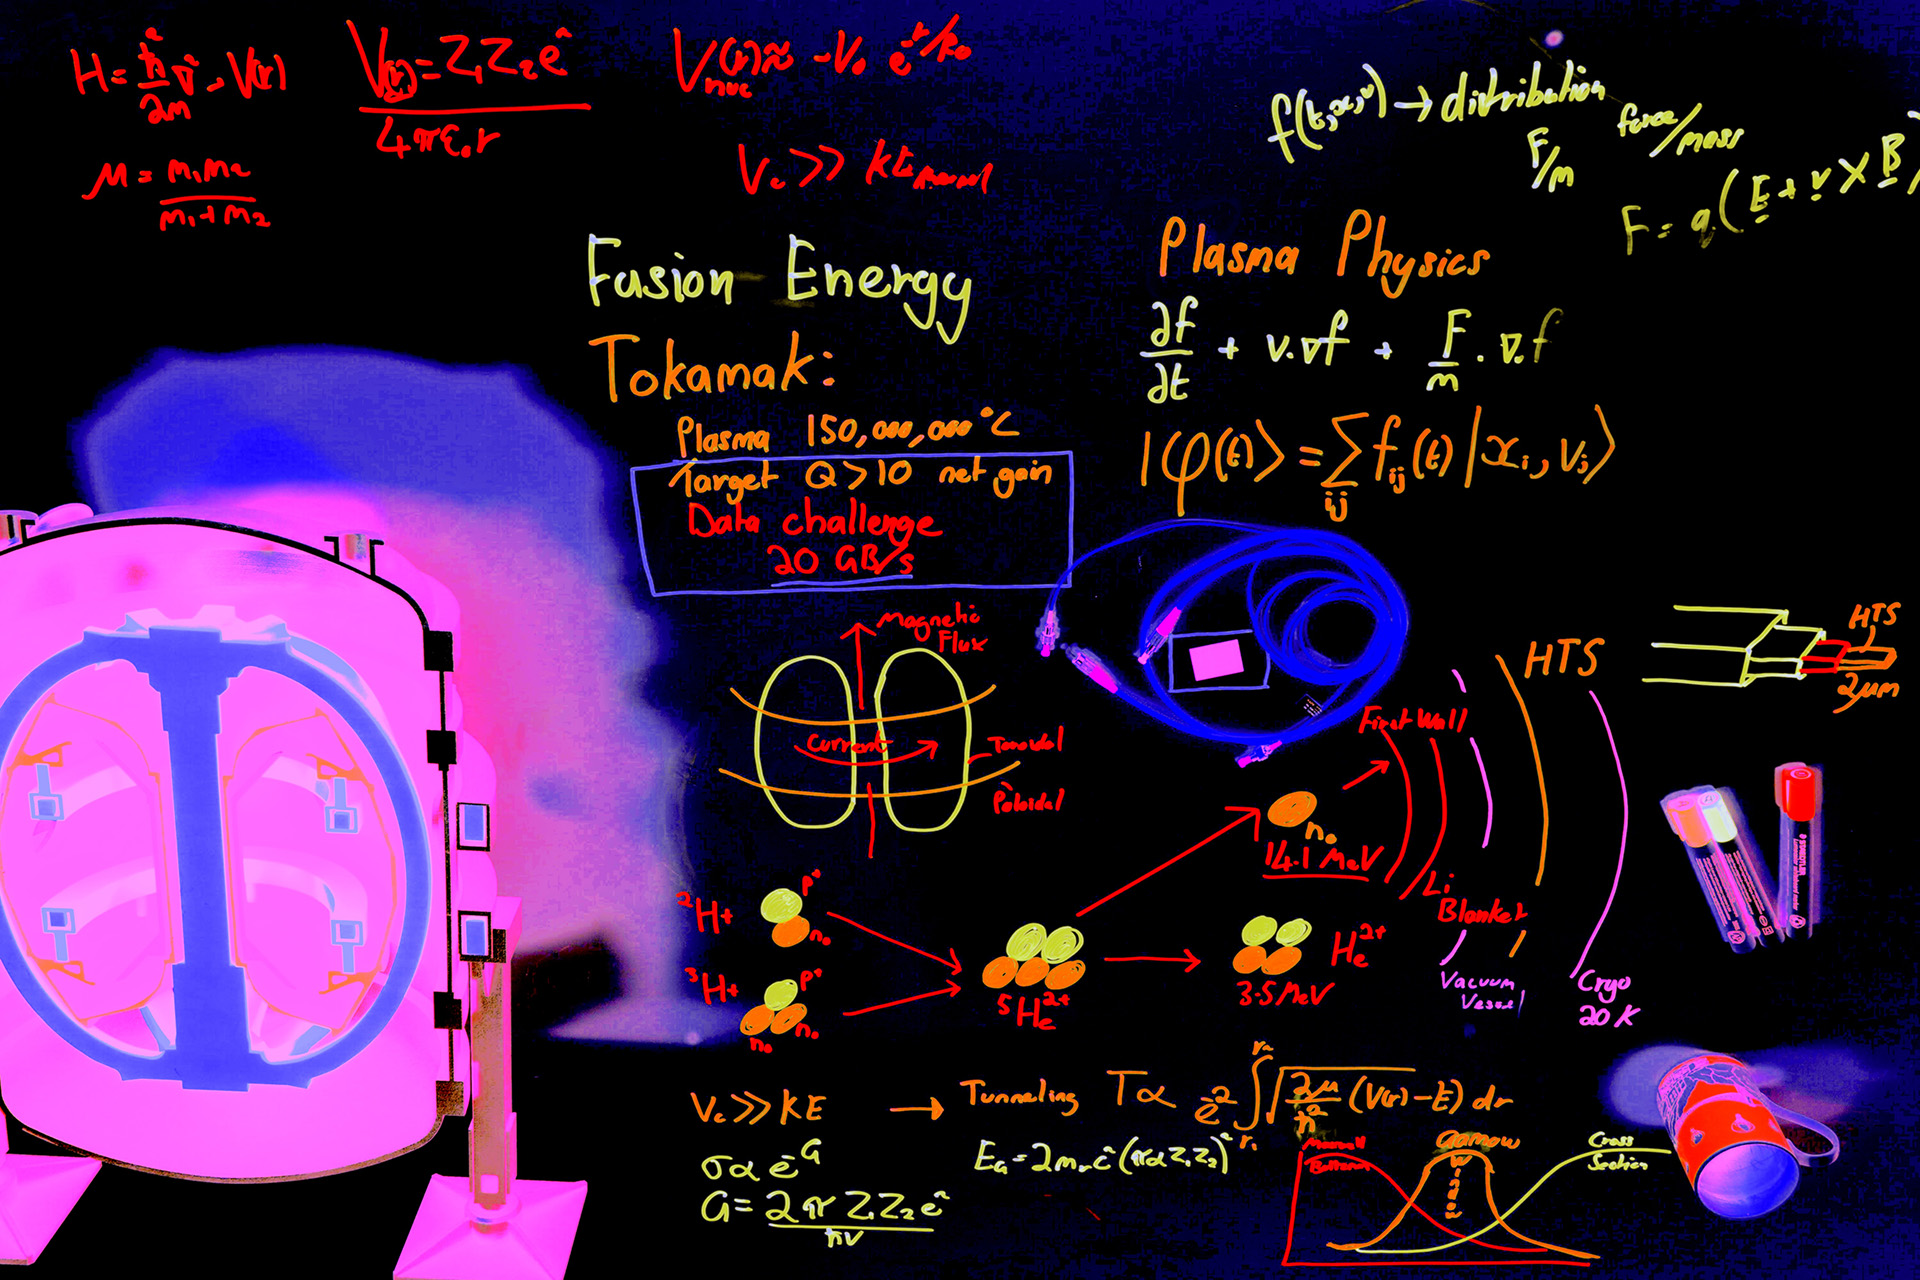 H = ħ²/2m ∇², V(r)
V(r) = Z₁Z₂e² / 4πε₀r
V_nuc(r) ≈ -V₀ e^-r/R₀
μ = m₁m₂ / m₁+m₂
V_c >> kt
f(t,x,v) → distribution
F/m
force/mass
F = q(E + v × B)
Fusion Energy
Tokamak:
Plasma 150,000,000°C
Target Q > 10 net gain
Data challenge
20 GB/s
Plasma Physics
∂f/∂t + v.∇f + F/m . ∇.f
|φ(t)⟩ = Σ_ij f_ij(t) |x_i, v_j⟩
Magnetic
Flux
Current
Toroidal
Poloidal
HTS
HTS
2μm
First Wall
n₀
14.1 MeV
Li
Blanket
Vacuum
Vessel
Cryo
20 K
²H+
p⁺
n₀
³H+
p⁺
n₀
n₀
⁵He²⁺
He²⁺
3.5 MeV
V_c >> KE → Tunneling T ∝ e^-2 ∫ √(2μ/ħ² (V(r)-E) dr
r₂
r₁
σ ∝ e^-G
G = 2π Z₁Z₂e² / ħv
E_G = 2m_r c²(παZ₁Z₂)²
Gamow
Window
Cross
Section